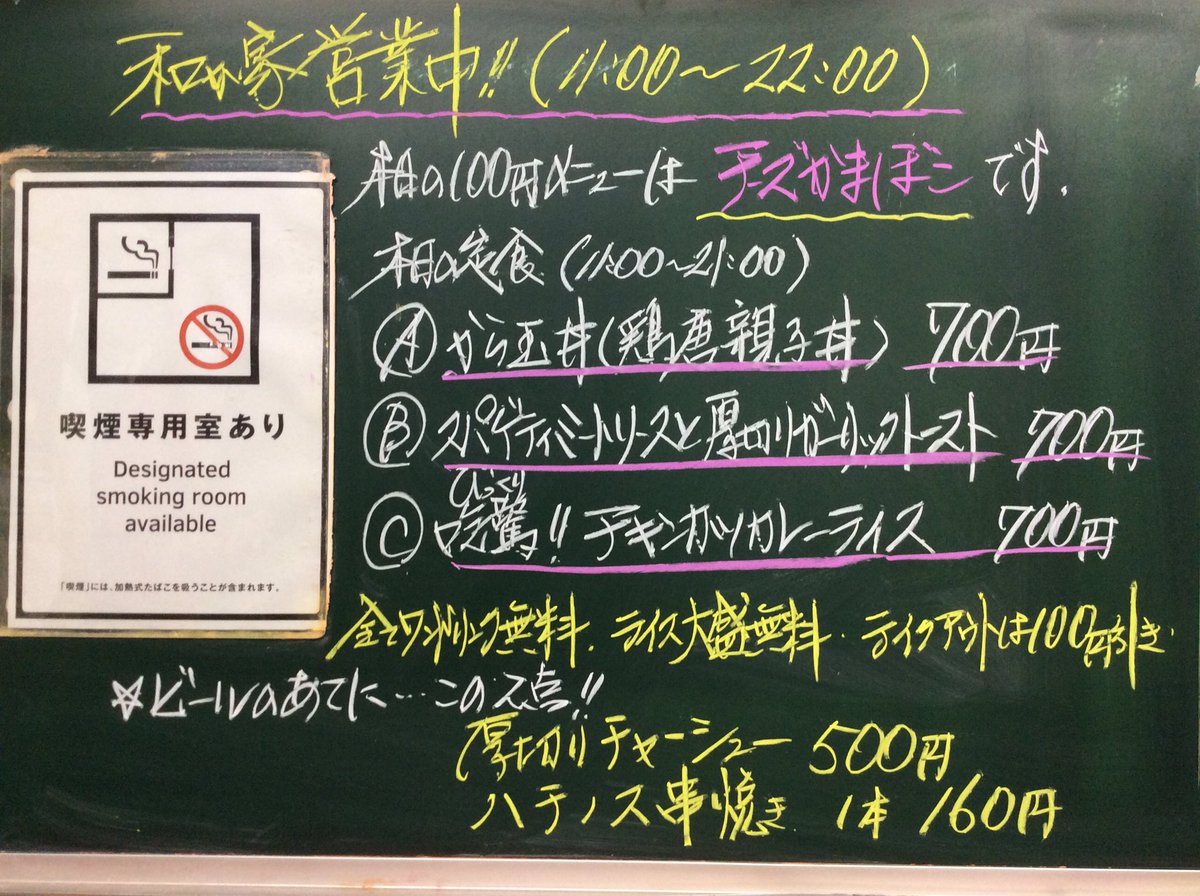 和か家営業中!!(11:00～22:00)
本日の100円メニューは チーズかまぼこ です.
本日の定食 (11:00～21:00)
Ⓐ から玉丼(鶏唐親子丼) 700円
Ⓑ スパゲティミートソースと厚切りガーリックトースト 700円
びっくり
Ⓒ 吃驚!! チキンカツカレーライス 700円
全てワンドリンク無料. ライス大盛無料. テイクアウトは100円引き.
☆ビールのあてに…この2点!!
厚切りチャーシュー 500円
ハチノス串焼き 1本 160円
喫煙専用室あり
Designated
smoking room
available
「喫煙」には、加熱式たばこを吸うことが含まれます。